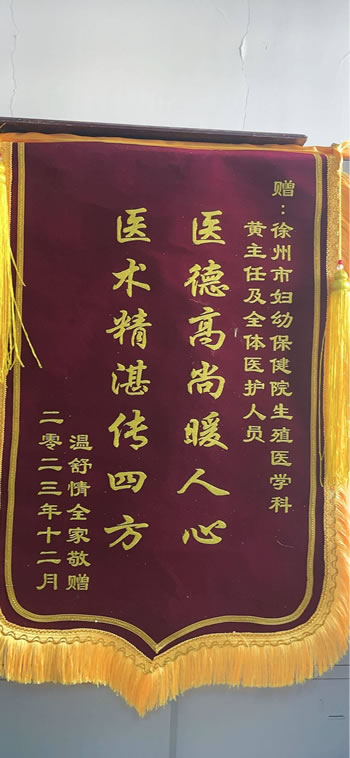 赠：徐州市妇幼保健院生殖医学科
黄主任及全体医护人员
医德高尚暖人心
医术精湛传四方
温舒情全家敬赠
二零二三年十二月